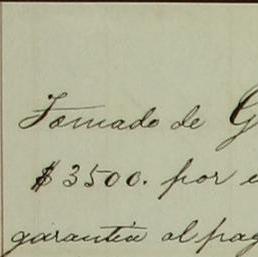 Tomado de G
$3500. por e
garantia al pag